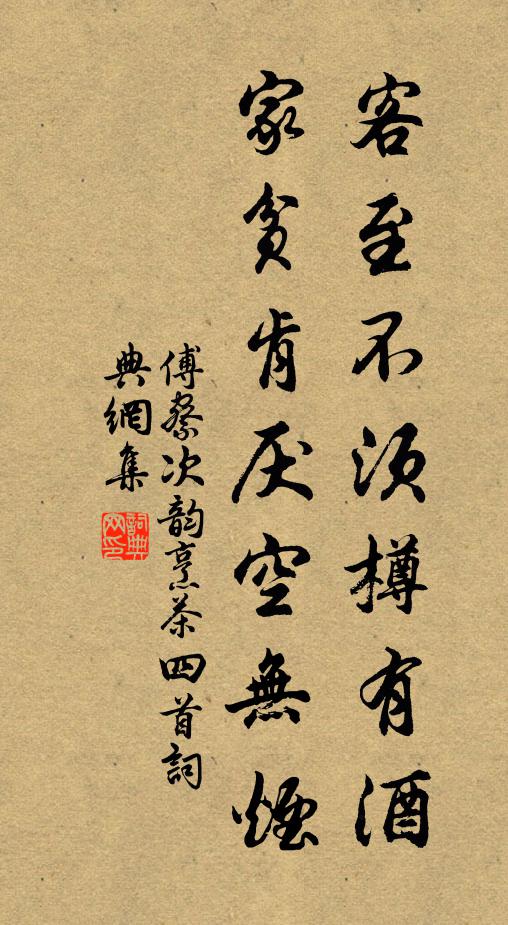 客至不须樽有酒
家貧肯厌空無煙
傅察次韵烹茶四首詞
典網集
詞典
网印